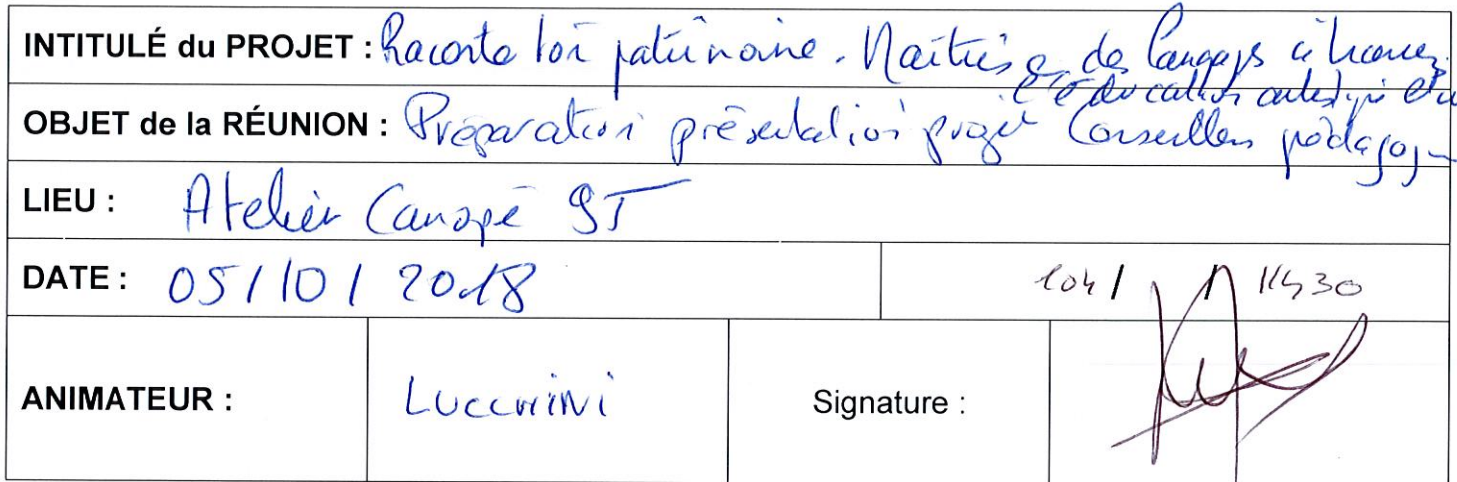 INTITULÉ du PROJET : Raconte toi patrimoine. Maîtrise des langages à travers
l'éducation artistique et cu
OBJET de la RÉUNION : Préparation présentation projet Conseillers pédagog
LIEU : Atelier Canopé
DATE : 05/10/2018 10h / 11h30
ANIMATEUR : LUCCHINI Signature :